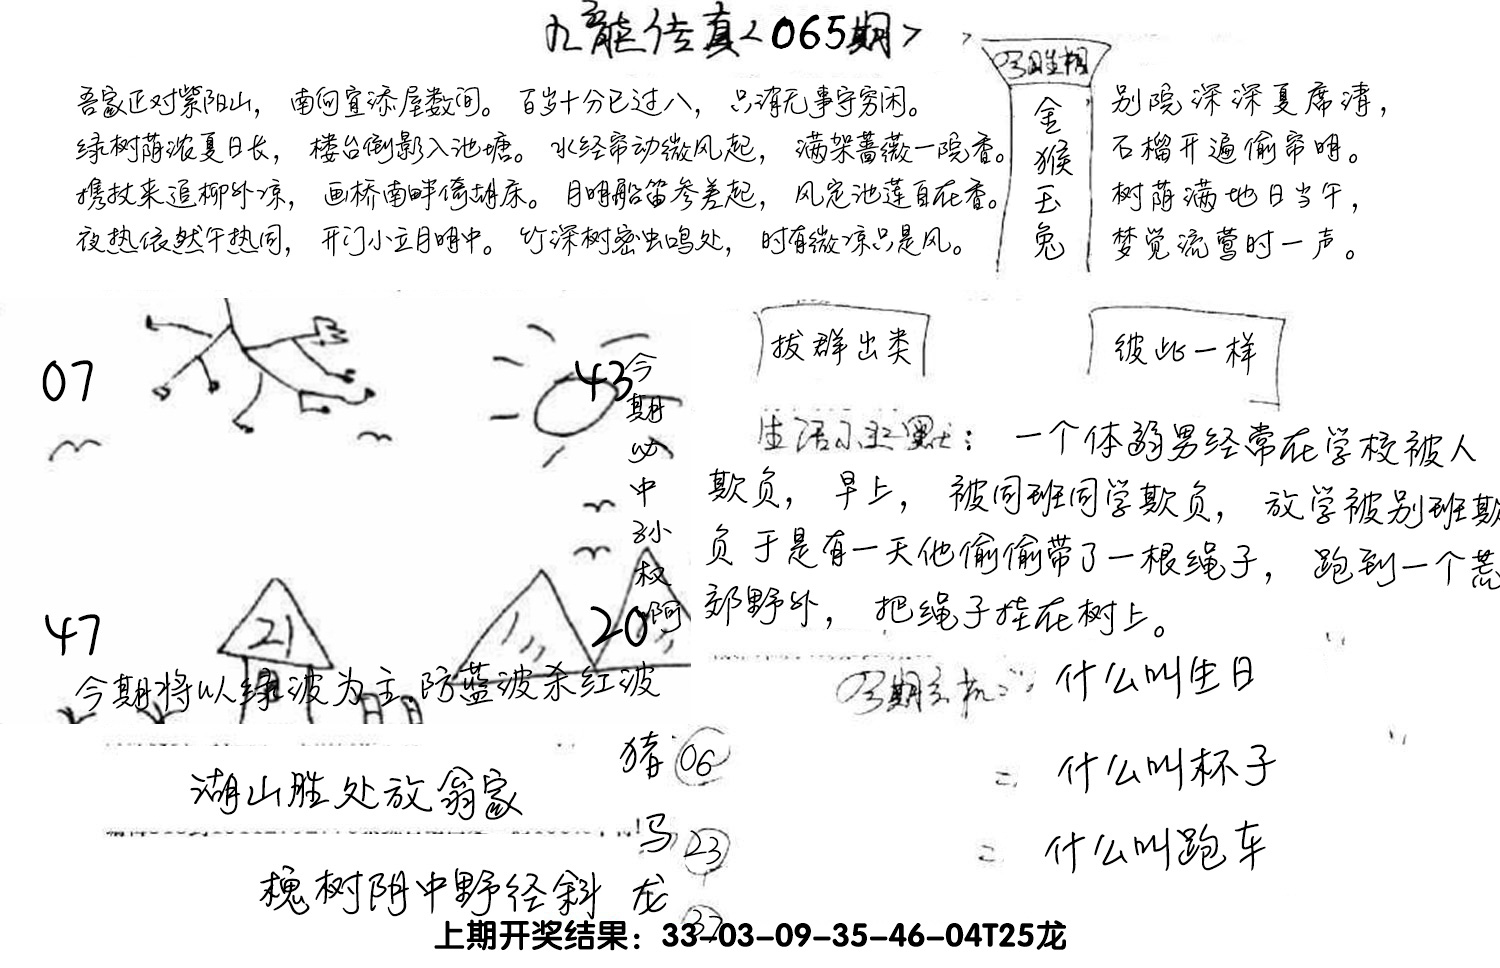 九龙传真<065期>
今期生相
金猴玉兔
吾家正对紫阳山，南向宜添屋数间。百岁十分已过八，只消无事守穷闲。
绿树荫浓夏日长，楼台倒影入池塘。水经帘动微风起，满架蔷薇一院香。
携杖来追柳外凉，画桥南畔倚胡床。月明船笛参差起，风定池莲自在香。
夜热依然午热同，开门小立月明中。竹深树密虫鸣处，时有微凉只是风。
别院深深夏席清，
石榴开遍偷帘明。
树荫满地日当午，
梦觉流莺时一声。
07
43
今期必中孙权啊
47
21
20
今期将以绿波为主.防蓝波杀红波
拔群出类
彼此一样
生活小幽默：一个体弱男经常在学校被人
欺负，早上，被同班同学欺负，放学被别班欺
负于是有一天他偷偷带了一根绳子，跑到一个荒
郊野外，把绳子挂在树上。
今期玄机：什么叫生日
= 什么叫杯子
= 什么叫跑车
湖山胜处放翁家
槐树阴中野径斜
猪 06
马 23
龙 37
上期开奖结果：33-03-09-35-46-04T25龙